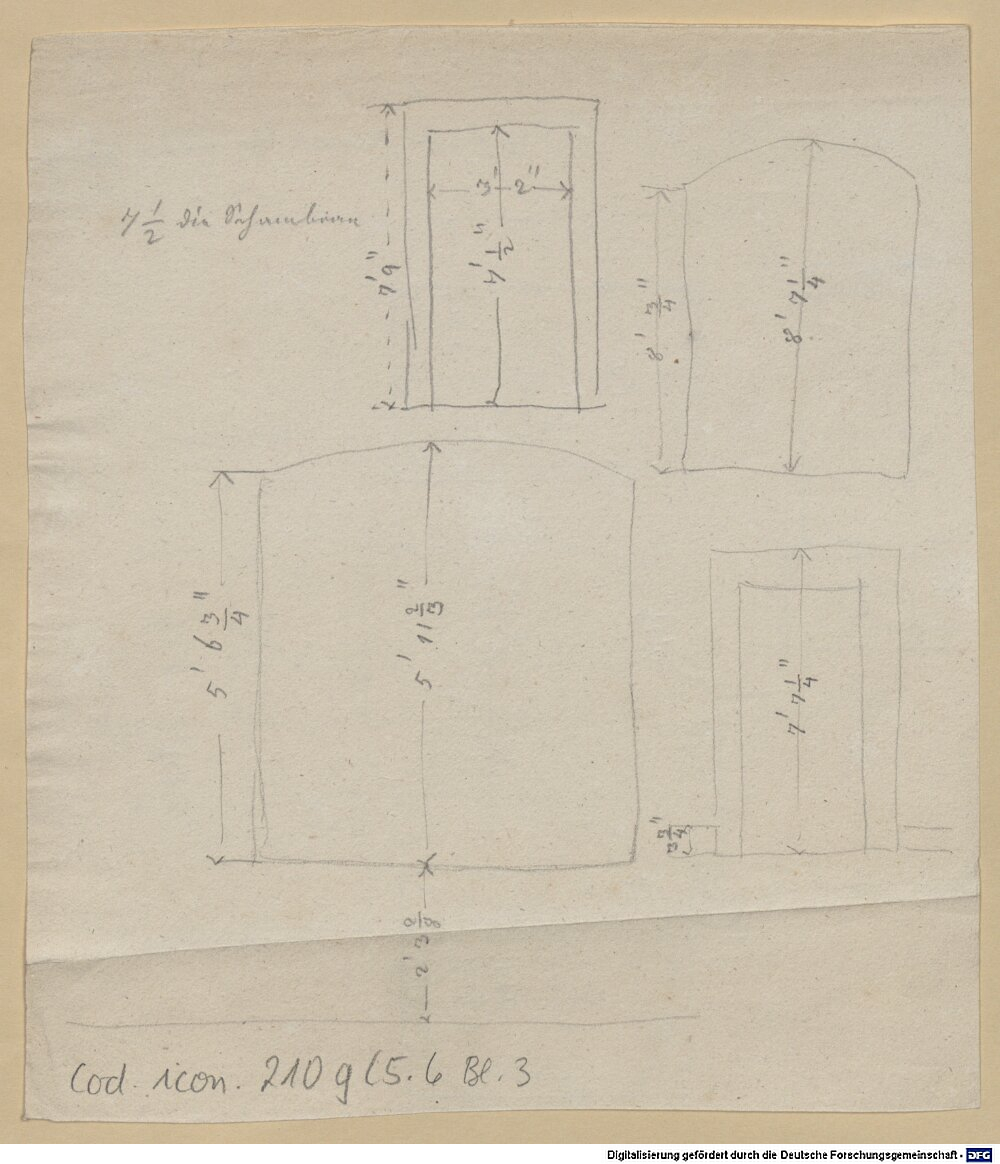 7 1/2 die Schambran
7' 9"
3' 2"
7' 1/2"
8' 3/4"
8' 7 1/4"
5' 6 3/4"
5' 11 2/3"
7' 7 1/4"
3 3/4"
2' 3
Cod. icon. 210 g (5. 6 Bl. 3
Digitalisierung gefördert durch die Deutsche Forschungsgemeinschaft - DFG